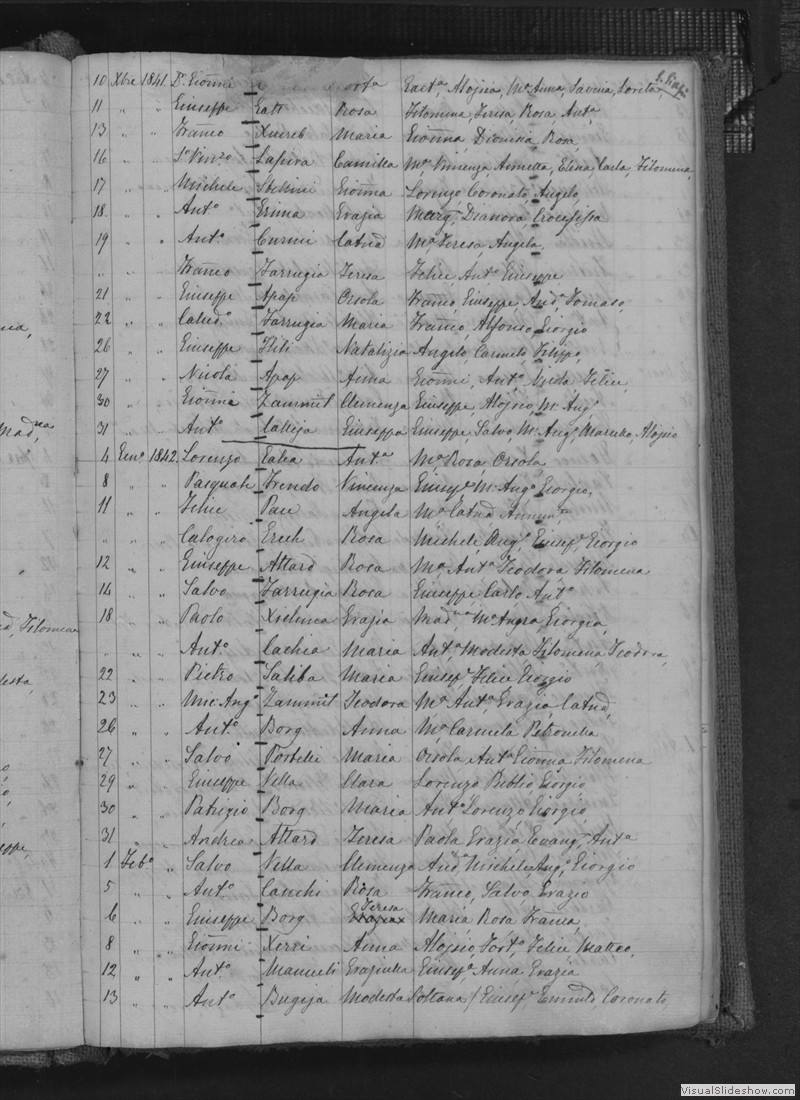 10 Xbre 1841. Dr. Giōnni Gaeta, Aloisia, Ma Anna, Saveria, Loreta,
11 " " Giuseppe Gatt Rosa Filomena, Teresa, Rosa, Anta
13 " " Franco Xuereb Maria Giōnna Dionisia, Rosa,
16 " " Sr Vinzo Lapira Camilla Ma Vincenza, Annetta, Elena Carla, Filomena,
17 " " Michele Stellini Giōnna Lorenzo, Coronato, Angelo,
18. " " Anto Grima Grazia Marg. Dianora, Crocifissa
19 " " Anto Curmi Catnā Ma Teresa, Angela,
" Franco Farrugia Teresa Felice, Anto Giuseppe
21 " " Giuseppe Apap Orsola Franco, Giuseppe, Andr. Tomaso,
22 " " Calcid.o Farrugia Maria Franco, Alfonso, Giorgio
26 " " Giuseppe Fliti Natalizia Angelo, Carmelo, Filippo,
27 " " Nicola Apap Anna Giōnni, Anto, Felice,
30 " " Giōnni Zammit Clemenza Giuseppe, Aloisio, Mc Angº
31 " " Anto Calleja Giuseppa Giuseppe Salvo, Mc Angº Aloisio
4 Genº 1842. Lorenzo Galea Anta Ma Rosa, Orsola
8 " " Pasquale Frendo Vincenza Giusepe Mc Angº Giorgio,
11 " " Felice Pace Angela Ma Catnā Annunta
" " " Calogero Grech Rosa Michele, Angº, Giusepe, Giorgio
12 " " Giuseppe Attard Rosa Ma Anta Teodora Filomena
14 " " Salvo Farrugia Rosa Giuseppe Carlo Anto
18 " " Paolo Xicluna Grazia Madna Ma Giorgia,
" " " Anto Cachia Maria Anta, Modesta Filomena, Teodora,
22 " " Pietro Saliba Maria Giusepe Felice Giorgio
23 " " Mic: Angº Zammit Teodora Ma Anta, Grazia, Catnā,
26 " " Anto Borg Anna Ma Carmela Petronilla
27 " " Salvo Portelli Maria Orsola Anta Giōnna Filomena
29 " " Giuseppe Vella Clara Lorenzo Publio Giorgio
30 " " Patrizio Borg Maria Anto Lorenzo Giorgio
31 " " Andrea Attard Teresa Paola Grazia Evang. Anta
1 Febº " Salvo Vella Clemenza Andr Michele, Angº, Giorgio
5 " " Anto Cauchi Rosa Franco, Salvo, Grazio
6 " " Giuseppe Borg Teresa Grazia Maria Rosa Franca,
8 " " Giōnni Xerri Anna Aloisio, Forto, Felice Matteo,
12 " " Anto Manueli Graziulla Giusepe, Anna, Grazia
13 " " Anto Bugeja Modesta Soltana / Giusepe, Coronato,
VisualSlideshow.com